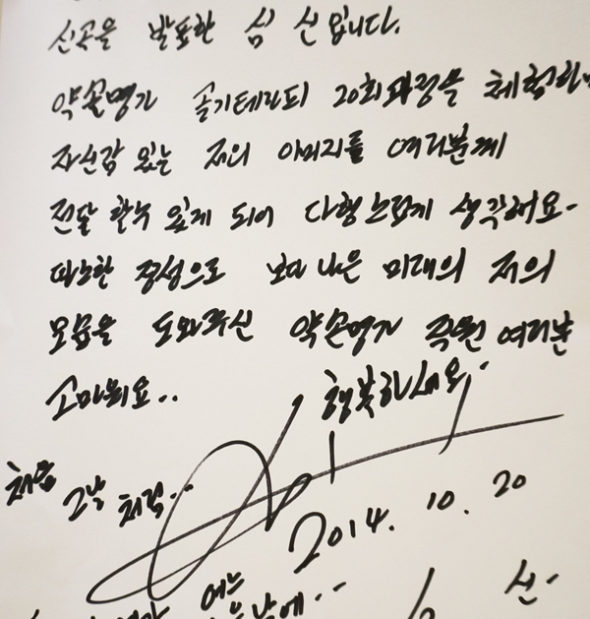 신곡을 발표한 심 신입니다.
약손명가 골기테라피 20회과정을 체험하
자신감 있는 저의 이미지를 여러분께
전달 할수 있게 되어 다행스럽게 생각해요-
따뜻한 정성으로 보다 나은 미래의 저의
모습을 도와주신 약손명가 직원 여러분
고마워요..
행복하세요.
처음
그날 처럼..
2014. 10. 20
어느
날에..
신-